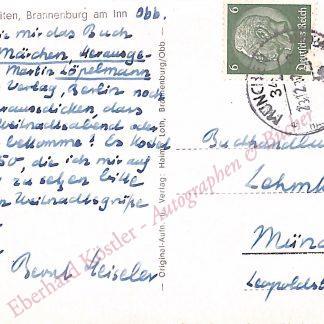 iten, Brannenburg am Inn Obb.
ie mir das Buch
Märchen, Herausge-
Martin Löpelmann
Verlag, Berlin noch
rausschicken dass
Weihnachtsabend oder
bekomme! Es kostet
50, die ich mir auf
zu setzen bitte
Weihnachtsgrüße
Bernt Heiseler
Original-Aufn. u. Verlag: Haim. Loth, Brannenburg/Obb.
6
6
Deutsches Reich
MÜNCHEN
Buchhandlung
Lehmk
Münc
Leopoldst
Eberhard Köstler - Autographen & Bücher